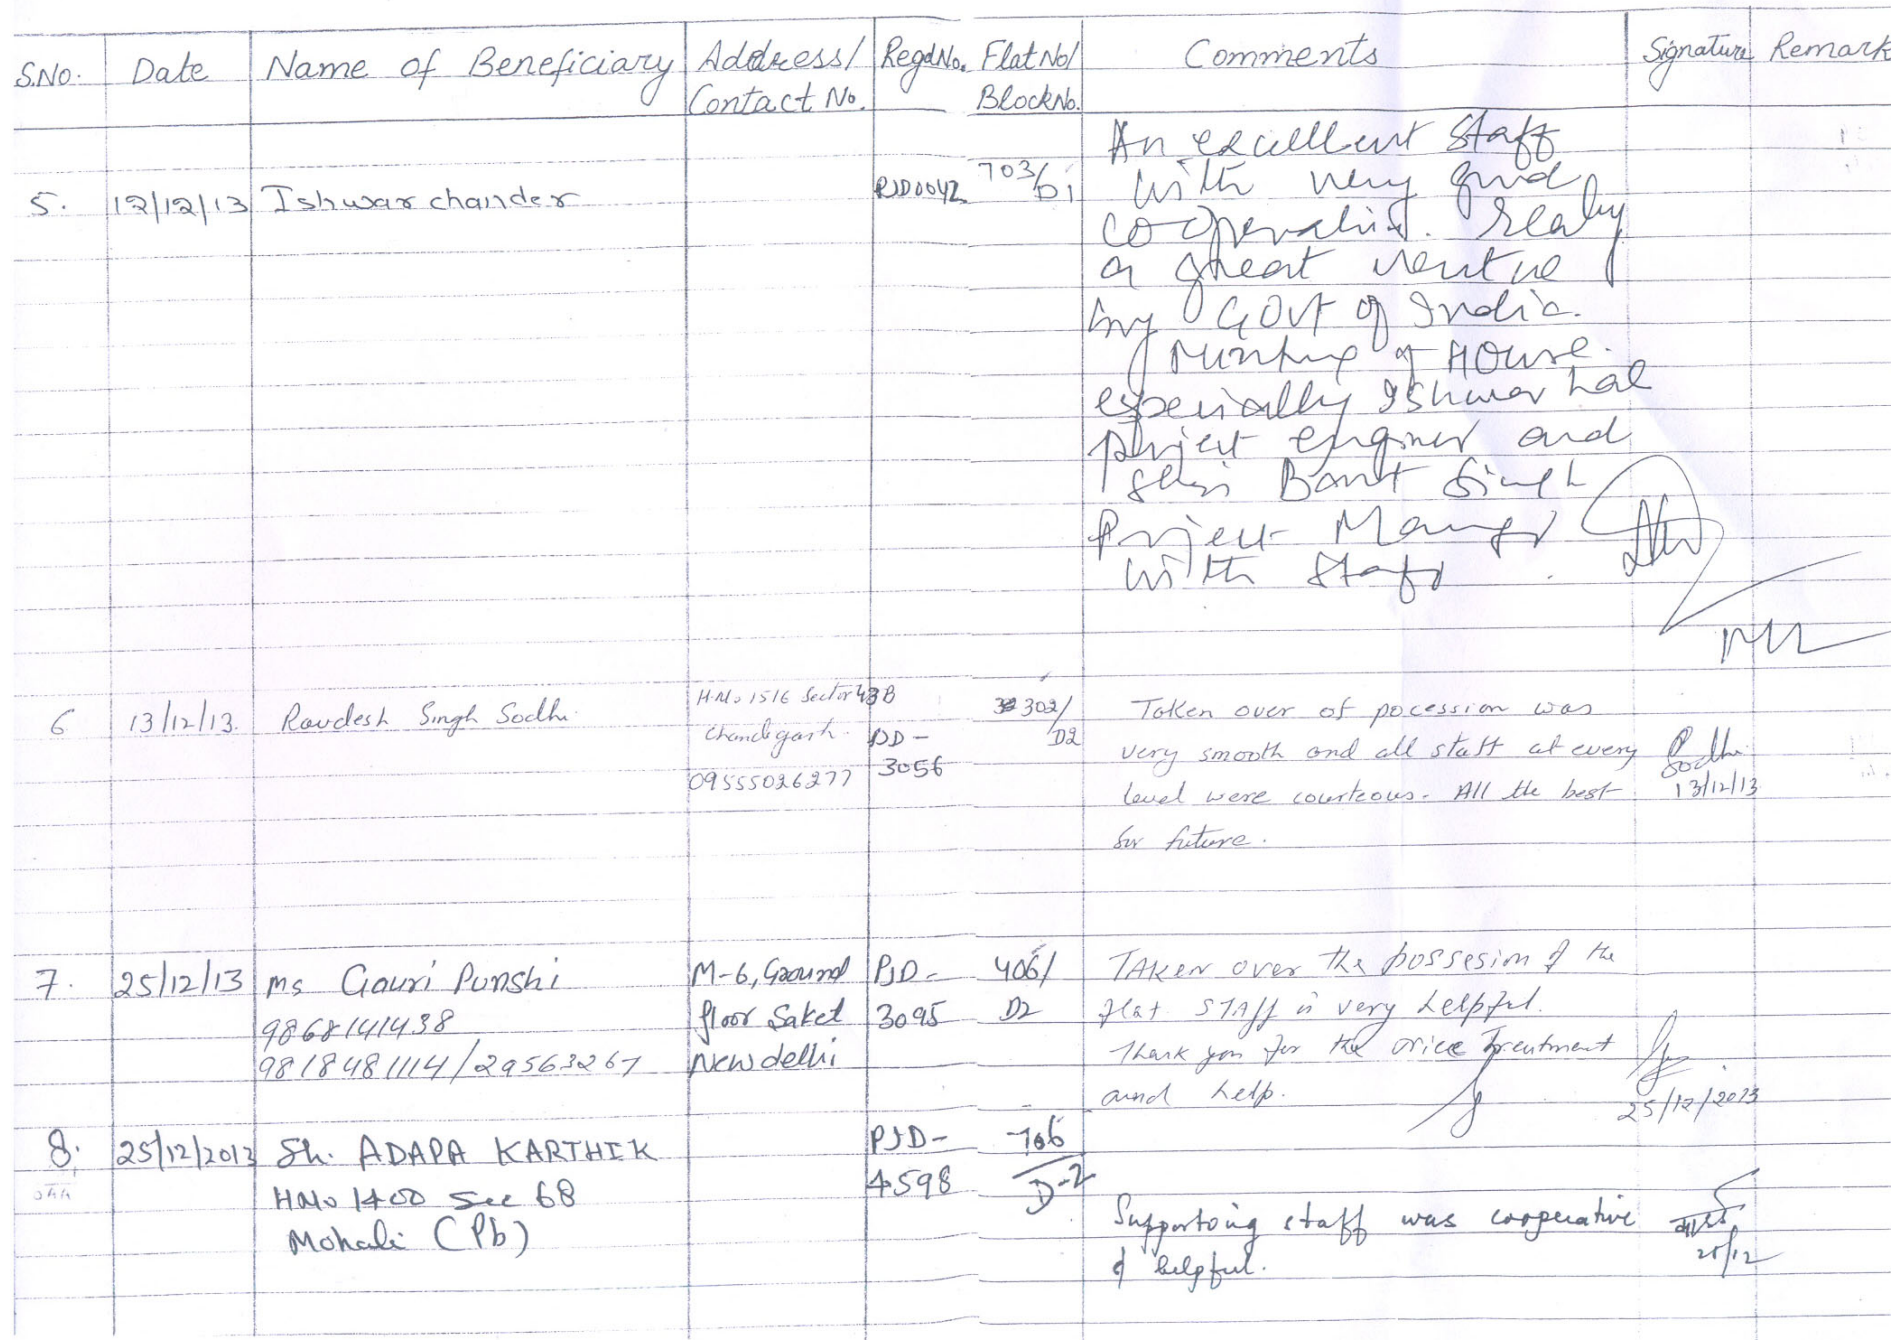 S.No. Date Name of Beneficiary Address/ Contact No. Regd No. Flat No/ Block No. Comments Signature Remark
5. 12/12/13 Ishwar chander PJD0042 703/D1
An excellent staff
with very good
cooperation. Realy
a great venture
by Govt of India.
Ministry of House.
especially Ishwar Lal
project engineer and
Shri Bant Singh
Project Manager
with staff
6 13/12/13. Ravdesh Singh Sodhi
H.No 1516 Sector 43B
Chandigarh.
09555026277
PJD-
3056
302/
D2
Taken over of pocession was
very smooth and all staff at every
level were courteous. All the best
for future.
Sodhi
13/12/13
7. 25/12/13 ms Gauri Punshi
9868141438
9818481114/29563267
M-6, Ground
floor Saket
New delhi
PJD-
3095
406/
D2
TAKen over the possesion of the
flat. STAff is very helpful.
Thank you for the Treatment
and help.
25/12/2013
8. 25/12/2013 Sh. ADAPA KARTHIK
HNo 1400 Sec 68
Mohali (Pb)
PJD-
4598
706
D-2
Supporting staff was cooperative
& helpful.
25/12